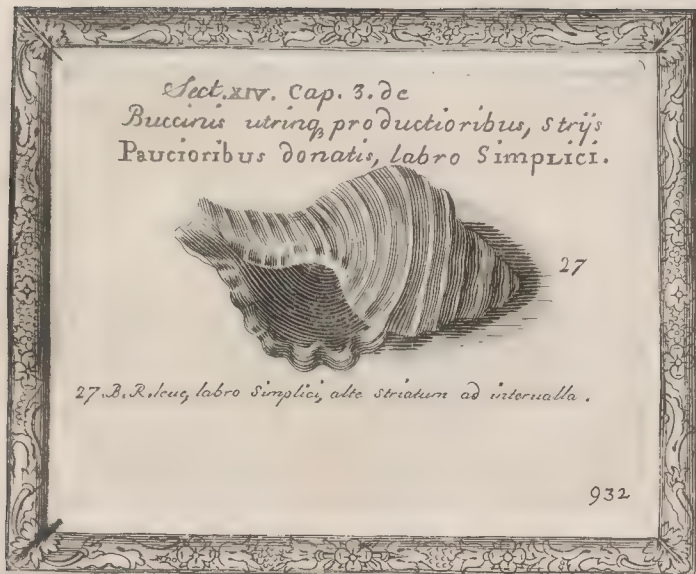 Sect. XIV. Cap. 3. de
Buccinis utrinqꝫ productioribus, strijs
Paucioribus donatis, labro Simplici.
27
27. B. R. leve, labro Simplici, alte striatum ad intervalla.
932